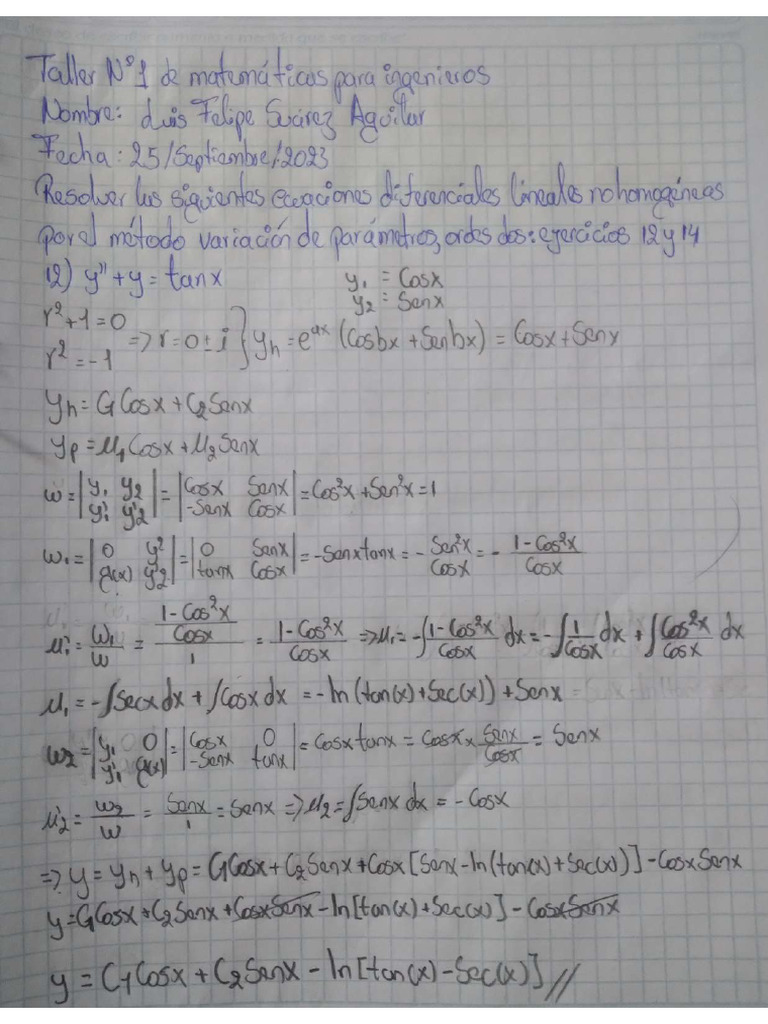 Taller N°1 de matemáticas para ingenieros
Nombre: Luis Felipe Suárez Aguilar
Fecha: 25/Septiembre/2023
Resolver las siguientes ecuaciones diferenciales lineales no homogéneas
por el método variación de parámetros, orden dos: ejercicios 12 y 14
12) y'' + y = tanx
y₁ = Cosx
y₂ = Senx
r²+1=0
r²=-1
=> r=0±i } yₕ=e^ax (Cosbx + Senbx) = Cosx + Senx
yₕ = C₁Cosx + C₂Senx
yₚ = μ₁Cosx + μ₂Senx
w = |y₁ y₂; y'₁ y'₂| = |Cosx Senx; -Senx Cosx| = Cos²x + Sen²x = 1
w₁ = |0 y₂; g(x) y'₂| = |0 Senx; tanx Cosx| = -Senxtanx = - Sen²x/Cosx = - (1-Cos²x)/Cosx
μ'₁ = w₁/w = ((1-Cos²x)/Cosx)/1 = (1-Cos²x)/Cosx => μ₁ = -∫(1-Cos²x)/Cosx dx = -∫1/Cosx dx + ∫Cos²x/Cosx dx
μ₁ = -∫Secx dx + ∫Cosx dx = -ln(tan(x)+Sec(x)) + Senx
w₂ = |y₁ 0; y'₁ g(x)| = |Cosx 0; -Senx tanx| = Cosx tanx = Cosx x Senx/Cosx = Senx
μ'₂ = w₂/w = Senx/1 = Senx => μ₂ = ∫Senx dx = -Cosx
=> y = yₕ + yₚ = C₁Cosx + C₂Senx + Cosx[Senx - ln(tan(x) + Sec(x))] - CosxSenx
y = C₁Cosx + C₂Senx + CosxSenx - ln[tan(x) + Sec(x)] - CosxSenx
y = C₁Cosx + C₂Senx - ln[tan(x) - Sec(x)] //